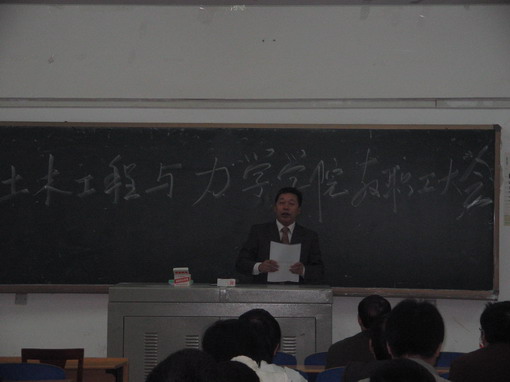 土木工程与力学学院教职工大会